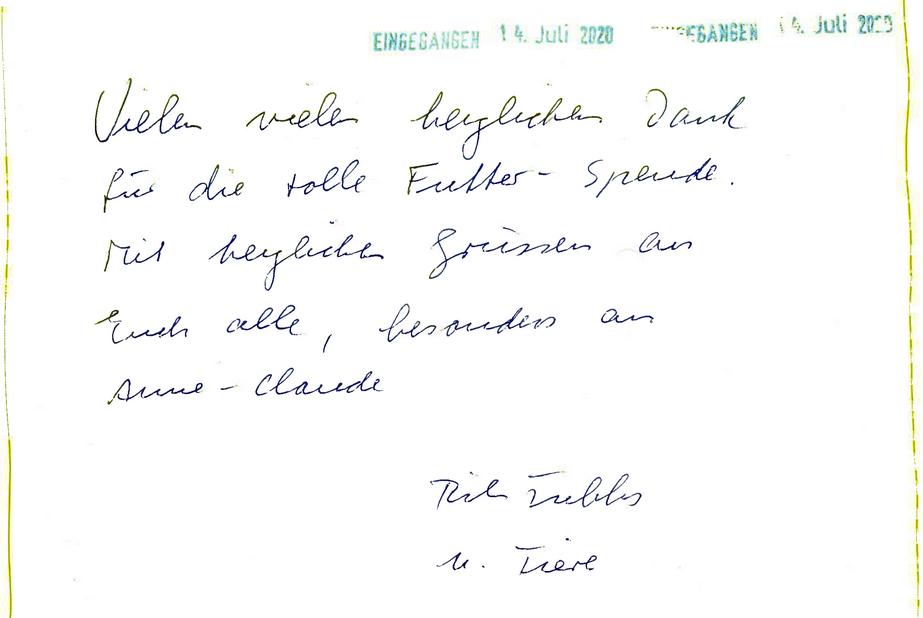 EINGEGANGEN 14. Juli 2020 EGANGEN 14. Juli 2020
Vielen vielen herzlichen Dank
für die tolle Futter-Spende.
Mit herzlichen Grüssen an
Euch alle, besonders an
Anne-Claude
u. Tiere